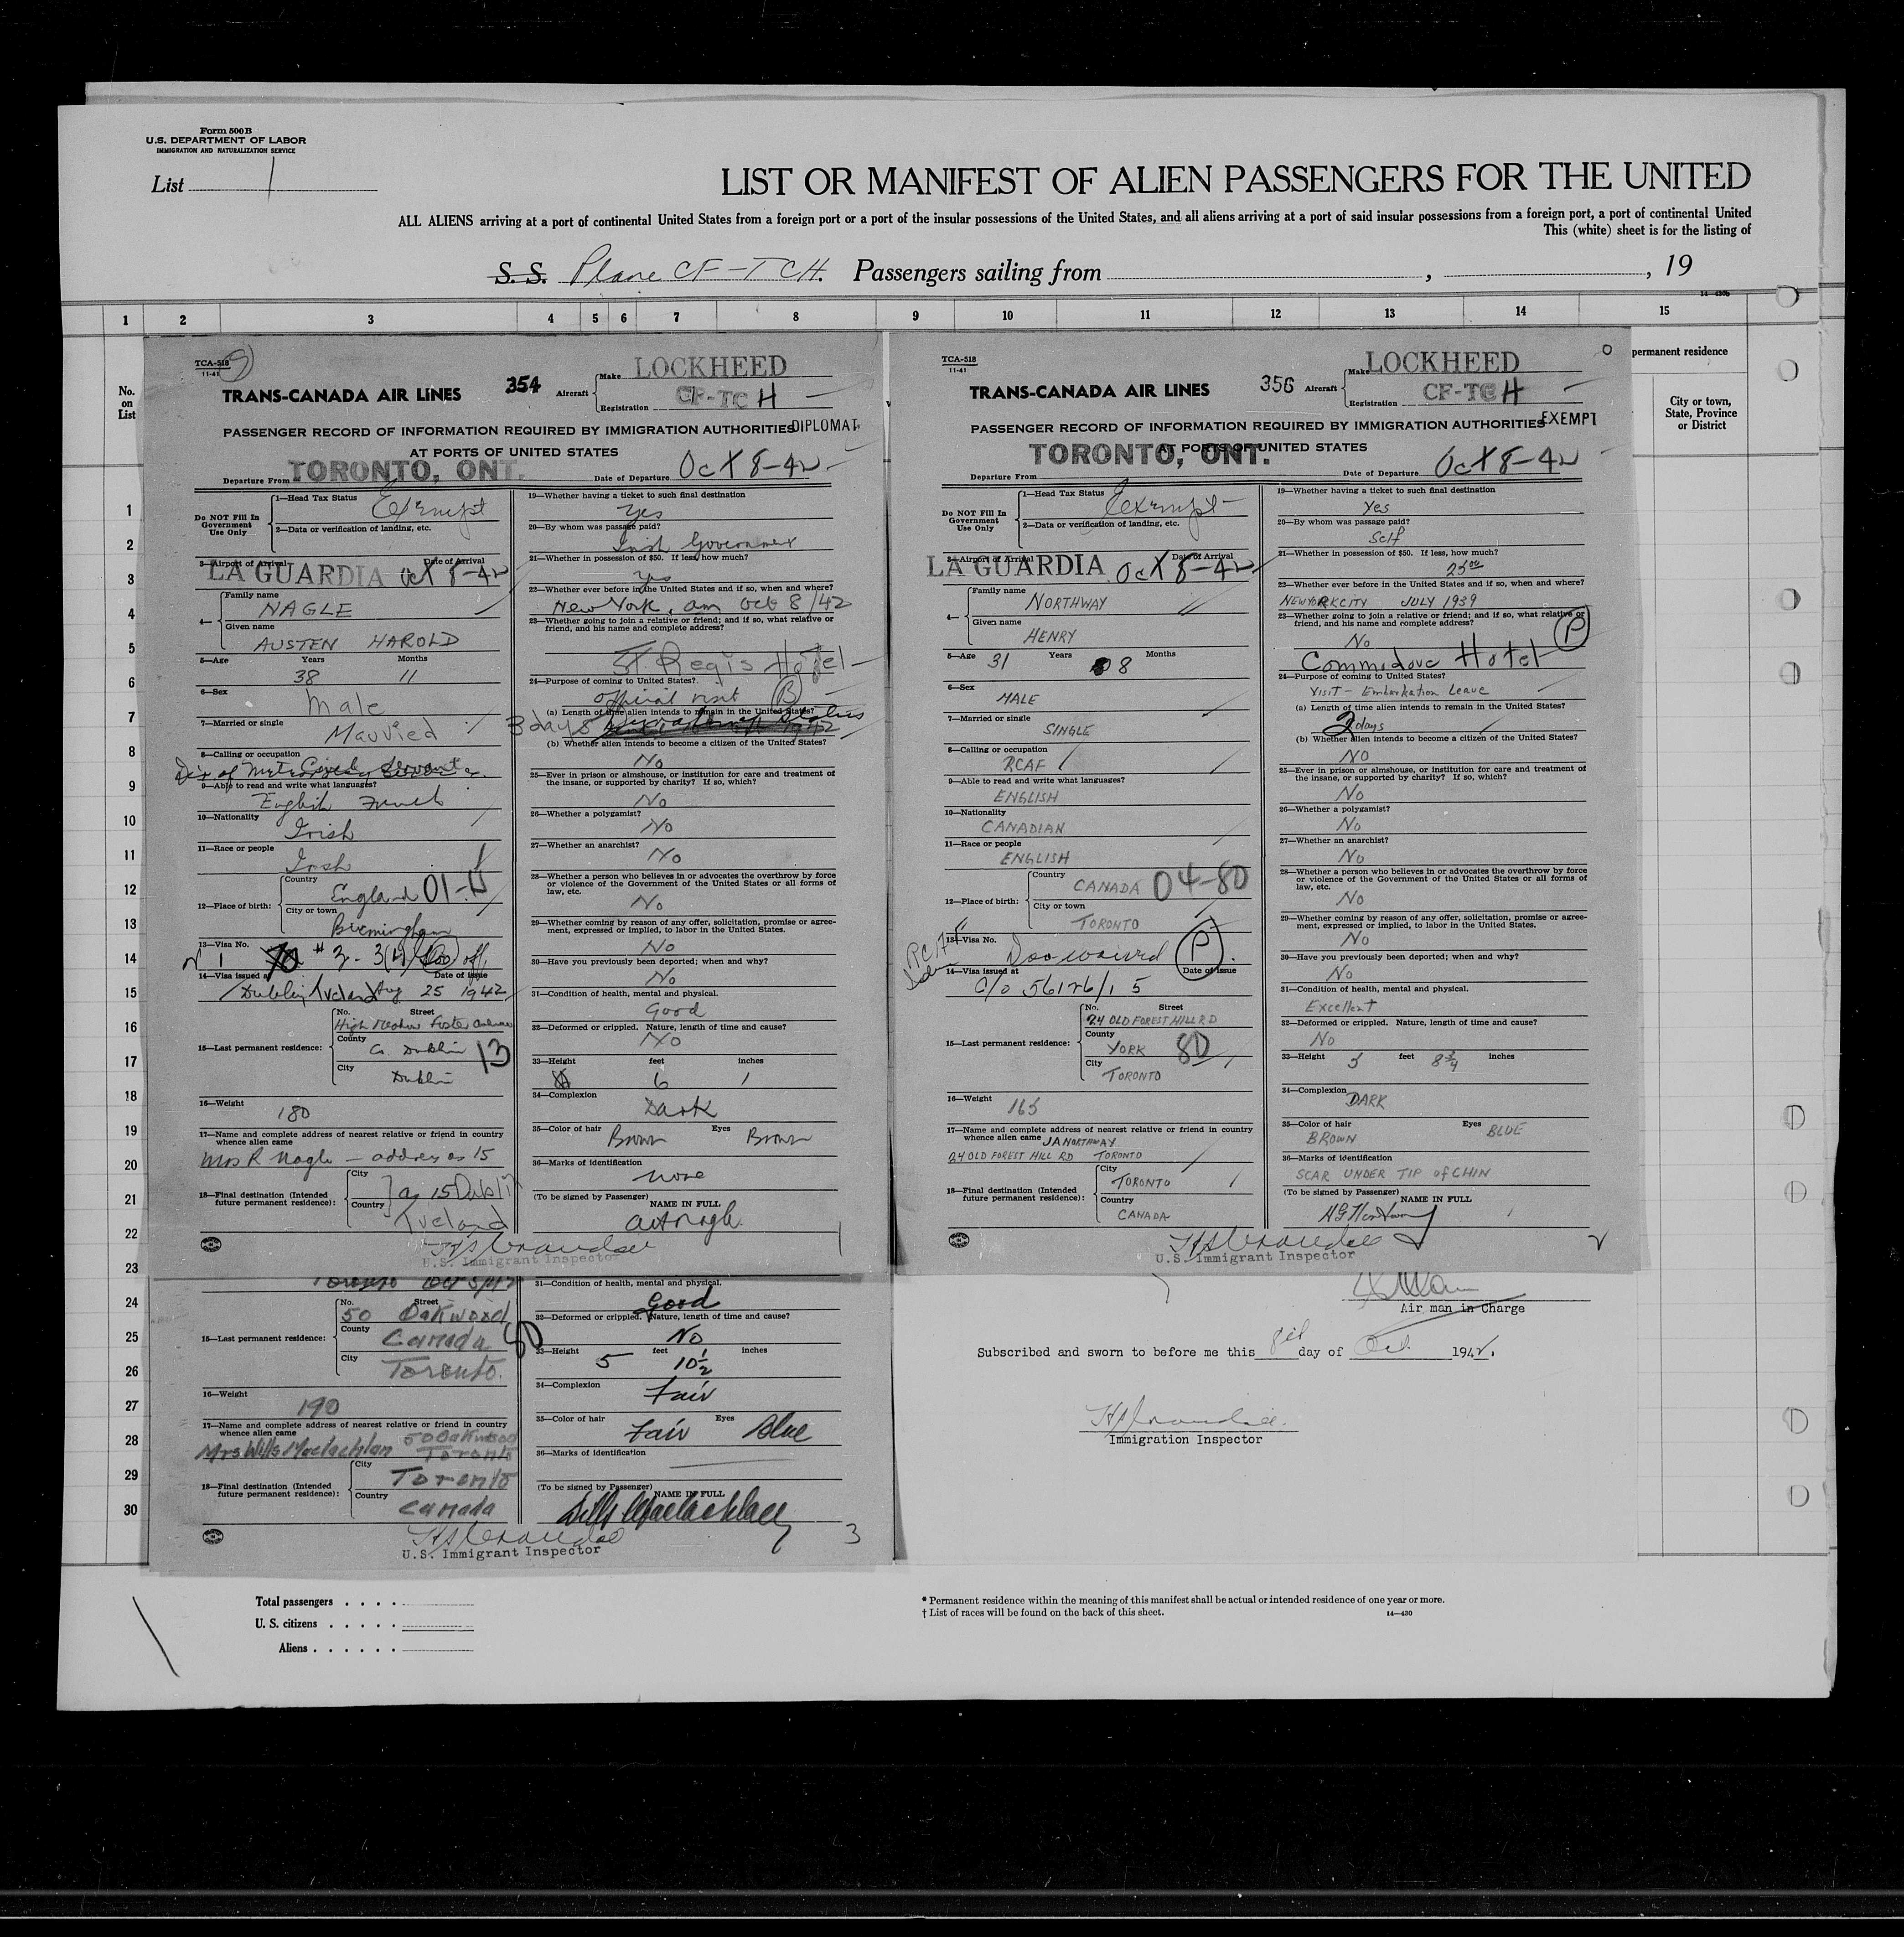 Form 500B
U.S. DEPARTMENT OF LABOR
IMMIGRATION AND NATURALIZATION SERVICE
List 1
LIST OR MANIFEST OF ALIEN PASSENGERS FOR THE UNITED
ALL ALIENS arriving at a port of continental United States from a foreign port or a port of the insular possessions of the United States, and all aliens arriving at a port of said insular possessions from a foreign port, a port of continental United
This (white) sheet is for the listing of
S.S. Plane CF-TCH. Passengers sailing from , , 19
1 2 3 4 5 6 7 8 9 10 11 12 13 14 15
No. on List
permanent residence
City or town, State, Province or District
1
2
3
4
5
6
7
8
9
10
11
12
13
14
15
16
17
18
19
20
21
22
23
24
25
26
27
28
29
30
TCA-518
11-41
TRANS-CANADA AIR LINES 354 Aircraft Make LOCKHEED
Registration CF-TCH
PASSENGER RECORD OF INFORMATION REQUIRED BY IMMIGRATION AUTHORITIES DIPLOMAT
AT PORTS OF UNITED STATES
Departure From TORONTO, ONT. Date of Departure Oct 8-42
Do NOT Fill In Government Use Only
1—Head Tax Status Exempt
2—Data or verification of landing, etc.
3—Airport of Arrival Date of Arrival
LA GUARDIA Oct 8-42
4— Family name NAGLE
Given name AUSTEN HAROLD
5—Age Years 38 Months 11
6—Sex Male
7—Married or single Married
8—Calling or occupation
Civil Servant
9—Able to read and write what languages?
English French
10—Nationality Irish
11—Race or people Irish
12—Place of birth: Country England 01-
City or town Birmingham
13—Visa No.
14—Visa issued at Date of issue
Dublin, Ireland Aug 25 1942
15—Last permanent residence: No. Street
High Foster Avenue
County Co. Dublin 13
City Dublin
16—Weight 180
17—Name and complete address of nearest relative or friend in country whence alien came
Mrs R Nagle — address as 15
18—Final destination (Intended future permanent residence): City as 15
Country Ireland
U.S. Immigrant Inspector
19—Whether having a ticket to such final destination
Yes
20—By whom was passage paid?
Irish Government
21—Whether in possession of $50. If less, how much?
Yes
22—Whether ever before in the United States and if so, when and where?
New York, am Oct 8/42
23—Whether going to join a relative or friend; and if so, what relative or friend, and his name and complete address?
St. Regis Hotel
24—Purpose of coming to United States?
official visit B
(a) Length of time alien intends to remain in the United States?
3 days
(b) Whether alien intends to become a citizen of the United States?
No
25—Ever in prison or almshouse, or institution for care and treatment of the insane, or supported by charity? If so, which?
No
26—Whether a polygamist?
No
27—Whether an anarchist?
No
28—Whether a person who believes in or advocates the overthrow by force or violence of the Government of the United States or all forms of law, etc.
No
29—Whether coming by reason of any offer, solicitation, promise or agreement, expressed or implied, to labor in the United States.
No
30—Have you previously been deported; when and why?
No
31—Condition of health, mental and physical.
Good
32—Deformed or crippled. Nature, length of time and cause?
No
33—Height feet inches
6 1
34—Complexion
Dark
35—Color of hair Brown Eyes Brown
36—Marks of identification
none
(To be signed by Passenger)
NAME IN FULL
TCA-518
11-41
TRANS-CANADA AIR LINES 356 Aircraft Make LOCKHEED
Registration CF-TCH
PASSENGER RECORD OF INFORMATION REQUIRED BY IMMIGRATION AUTHORITIES EXEMPT
AT PORTS OF UNITED STATES
Departure From TORONTO, ONT. Date of Departure Oct 8-42
Do NOT Fill In Government Use Only
1—Head Tax Status Exempt
2—Data or verification of landing, etc.
3—Airport of Arrival Date of Arrival
LA GUARDIA Oct 8-42
4— Family name NORTHWAY
Given name HENRY
5—Age 31 Years 8 Months
6—Sex MALE
7—Married or single SINGLE
8—Calling or occupation RCAF
9—Able to read and write what languages?
ENGLISH
10—Nationality CANADIAN
11—Race or people ENGLISH
12—Place of birth: Country CANADA 04-80
City or town TORONTO
13—Visa No. Doc waived P
14—Visa issued at Date of issue
15—Last permanent residence: No. Street
24 OLD FOREST HILL RD
County YORK 80
City TORONTO
16—Weight 165
17—Name and complete address of nearest relative or friend in country whence alien came JA NORTHWAY
24 OLD FOREST HILL RD TORONTO
18—Final destination (Intended future permanent residence): City TORONTO
Country CANADA
U.S. Immigrant Inspector
19—Whether having a ticket to such final destination
Yes
20—By whom was passage paid?
Self
21—Whether in possession of $50. If less, how much?
25.00
22—Whether ever before in the United States and if so, when and where?
NEW YORK CITY JULY 1939
23—Whether going to join a relative or friend; and if so, what relative or friend, and his name and complete address?
No P
Commodore Hotel
24—Purpose of coming to United States?
VISIT — Embarkation Leave
(a) Length of time alien intends to remain in the United States?
2 days
(b) Whether alien intends to become a citizen of the United States?
NO
25—Ever in prison or almshouse, or institution for care and treatment of the insane, or supported by charity? If so, which?
No
26—Whether a polygamist?
No
27—Whether an anarchist?
No
28—Whether a person who believes in or advocates the overthrow by force or violence of the Government of the United States or all forms of law, etc.
No
29—Whether coming by reason of any offer, solicitation, promise or agreement, expressed or implied, to labor in the United States.
No
30—Have you previously been deported; when and why?
No
31—Condition of health, mental and physical.
Excellent
32—Deformed or crippled. Nature, length of time and cause?
No
33—Height 5 feet 8 3/4 inches
34—Complexion
DARK
35—Color of hair BROWN Eyes BLUE
36—Marks of identification
SCAR UNDER TIP of CHIN
(To be signed by Passenger)
NAME IN FULL
15—Last permanent residence: No. Street
50 Oakwood
County Canada
City Toronto
16—Weight 190
17—Name and complete address of nearest relative or friend in country whence alien came
Mrs Wills Maclachlan 50 Oakwood Toronto
18—Final destination (Intended future permanent residence): City Toronto
Country Canada
U.S. Immigrant Inspector
31—Condition of health, mental and physical.
Good
32—Deformed or crippled. Nature, length of time and cause?
No
33—Height feet inches
5 10 1/2
34—Complexion
Fair
35—Color of hair Fair Eyes Blue
36—Marks of identification
(To be signed by Passenger)
NAME IN FULL
Wills Maclachlan
3
Air man in Charge
Subscribed and sworn to before me this 8th day of Oct. 1942.
Immigration Inspector
Total passengers
U. S. citizens
Aliens
* Permanent residence within the meaning of this manifest shall be actual or intended residence of one year or more.
† List of races will be found on the back of this sheet. 14—430